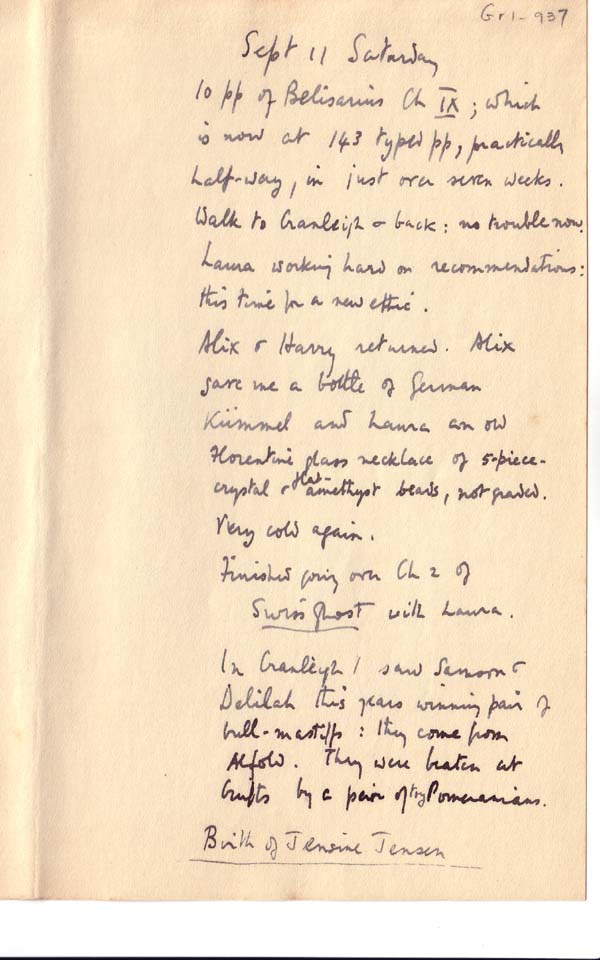 Gr1-937
Sept 11 Saturday
10 pp of Belisarius Ch IX; which
is now at 143 typed pp, practically
half-way, in just over seven weeks.
Walk to Cranleigh & back: no trouble now.
Laura working hard on recommendations:
this time for a new ethic.
Alix & Harry returned. Alix
gave me a bottle of German
Kümmel and Laura an old
Florentine glass necklace of 5-piece-
crystal & flat-amethyst beads, not graded.
Very cold again.
Finished going over Ch 2 of
Swiss Ghost with Laura.
In Cranleigh I saw Samson &
Delilah this years winning pair of
bull-mastiffs: they come from
Alfold. They were beaten at
Crufts by a pair of toy Pomeranians.
Birth of Jensine Jensen